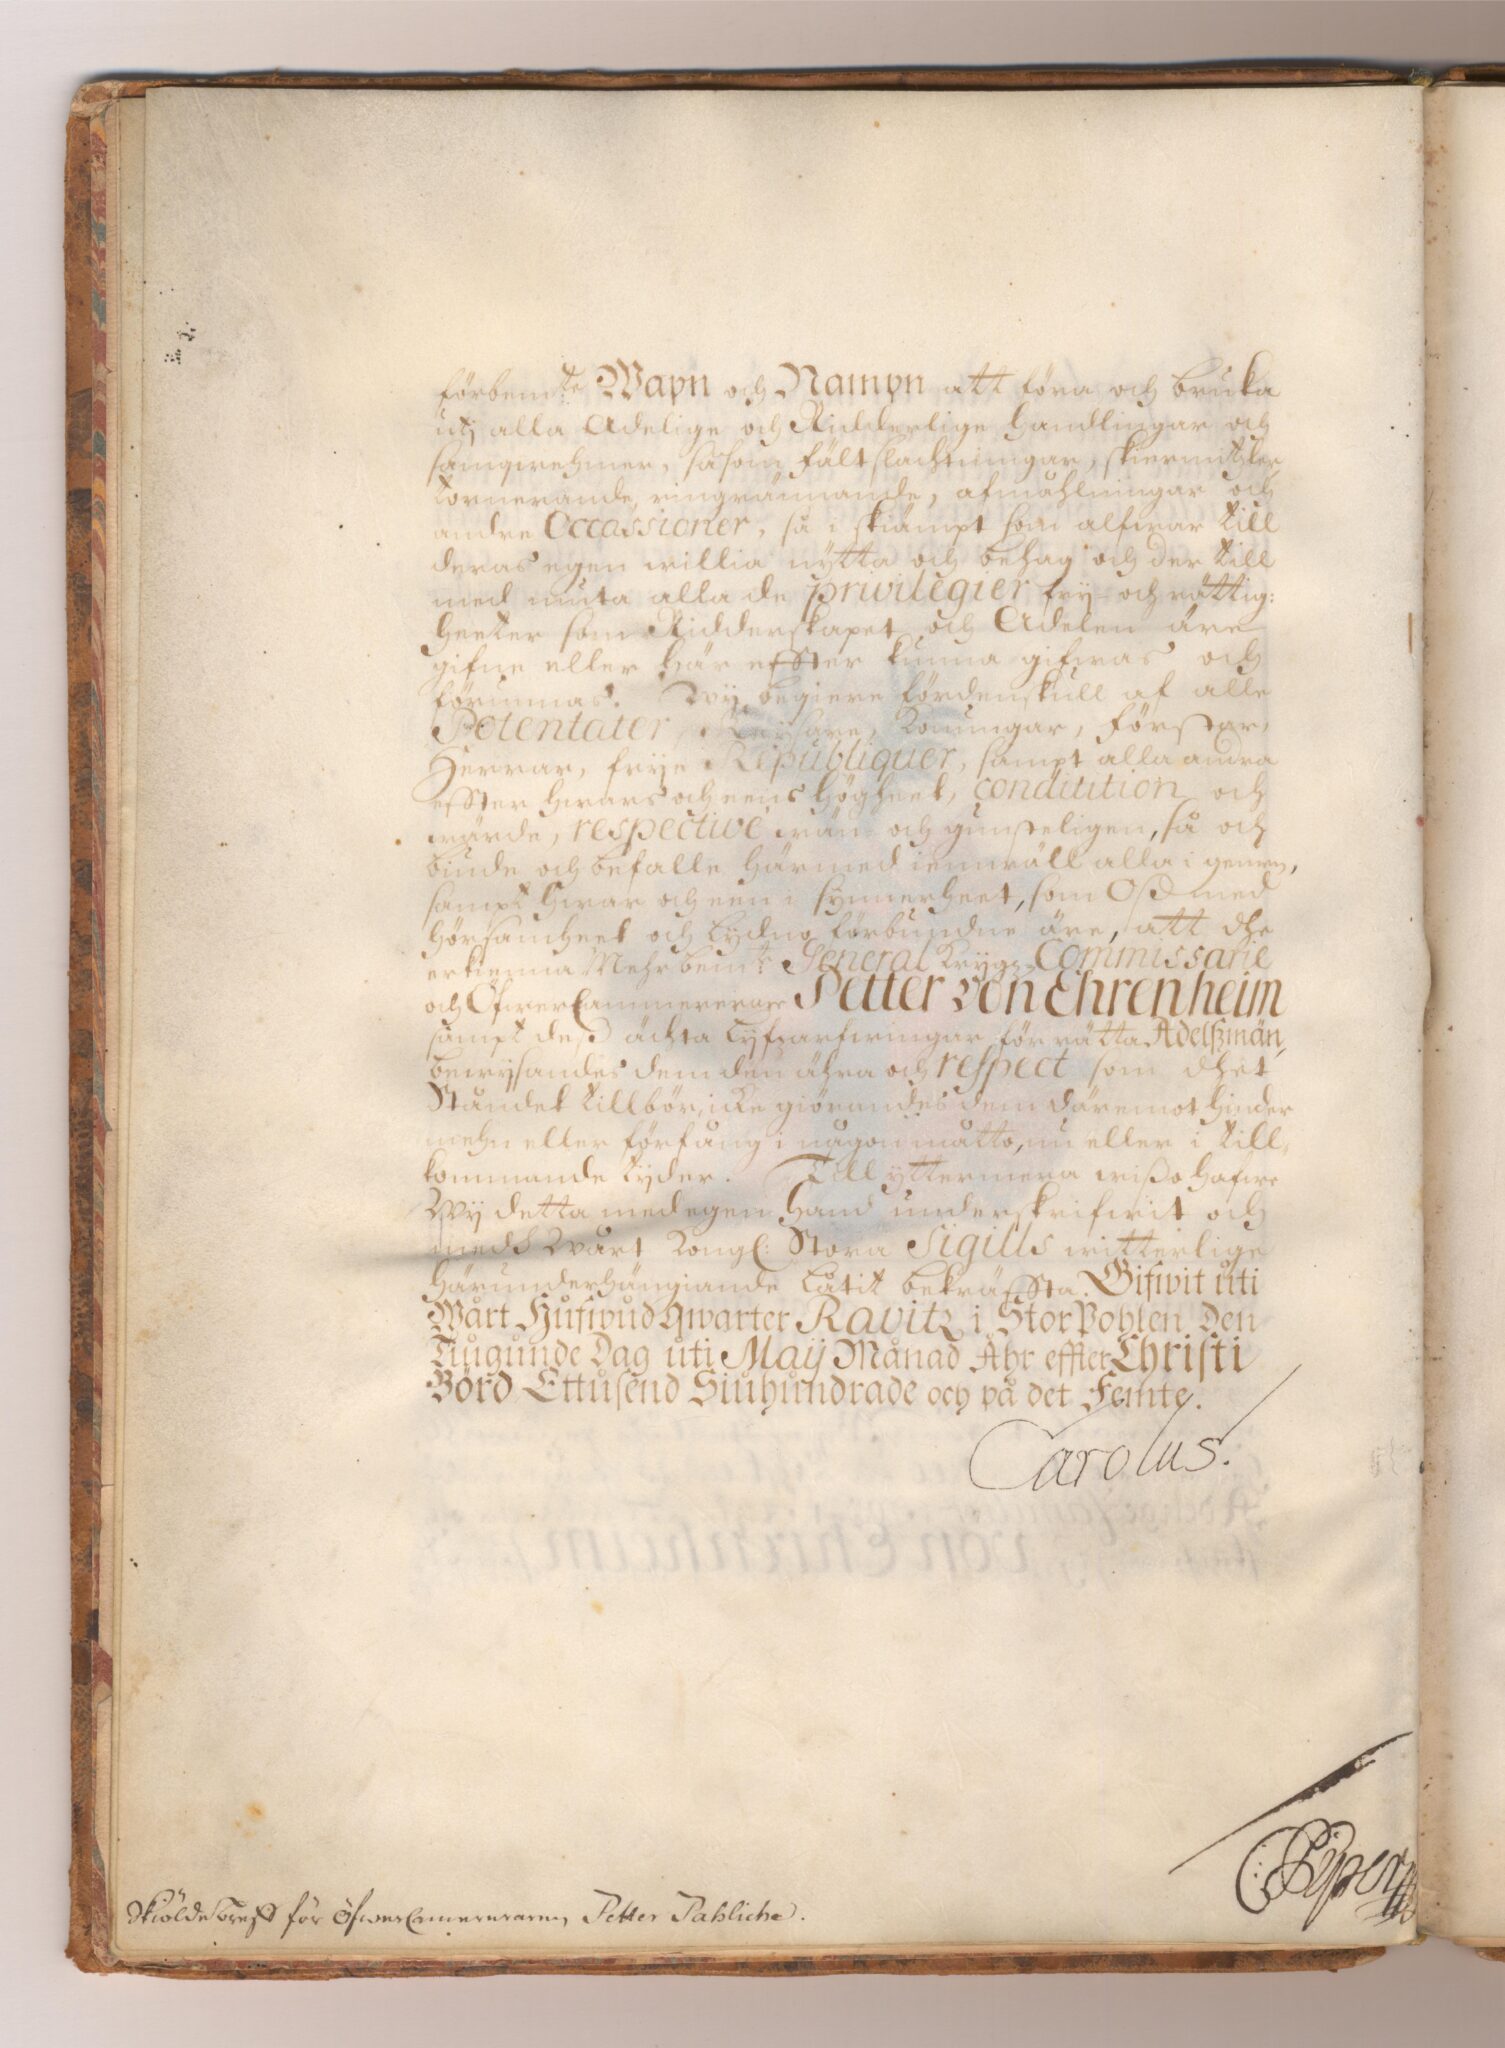 förbem:te Wapn och Nampn att föra och bruka
utj alla Adelige och Ridderlige handlingar och
samqwehmer, såsom fältslachtningar, skiermytzler
tornerande, ringrännande, afmåhlningar och
andre Occassioner, så i skiämpt som alfwar till
deras egen willia nytta och behag och der till
med niuta alla de privilegier fry- och rättig:
heeter som Ridderskapet och Adelen äre
gifne eller här effter kunna gifwas och
förunnas. Wij begiere fördenskull af alle
Potentater, Keijsare, Konungar, Förstar,
Herrar, frije Republiquer, sampt alla andra
effter hwars och eens högheet, condition och
wärde, respective wän- och gunsteligen, så och
biude och befalle härmed iemwäll alla i gemen,
sampt hwar och een i synnerheet, som Oß med
hörsamheet och lydno förbundne äre, att dhe
erkienna Mehrbem:te General Krygz Commissarie
och Öfwer Cammereraren Petter von Ehrenheim
sampt deß ächta Lyfzarfwingar för rätta Adelßmän,
bewysandes dem den ähra och respect som dhet
Ståndet tillbör, icke giörandes dem däremot hinder
mehn eller förfång i någon måtto, nu eller i till-
kommande tyder. Till yttermera wißo hafwe
Wij detta med egen hand underskrifwit och
medh Wårt Kongl: Stora Sigills witterlige
härunderhängiande låtit bekräffta. Gifwit uti
Wårt Hufwud Qwarter Ravitz i Stor Pohlen Den
Tiugunde Dag uti Maij Månad Åhr effter Christi
Börd Ettusend Siuhundrade och på det Femte.
Carolus.
C Piper
Skiöldebref för Öfwer Camereraren Petter Pahliche.